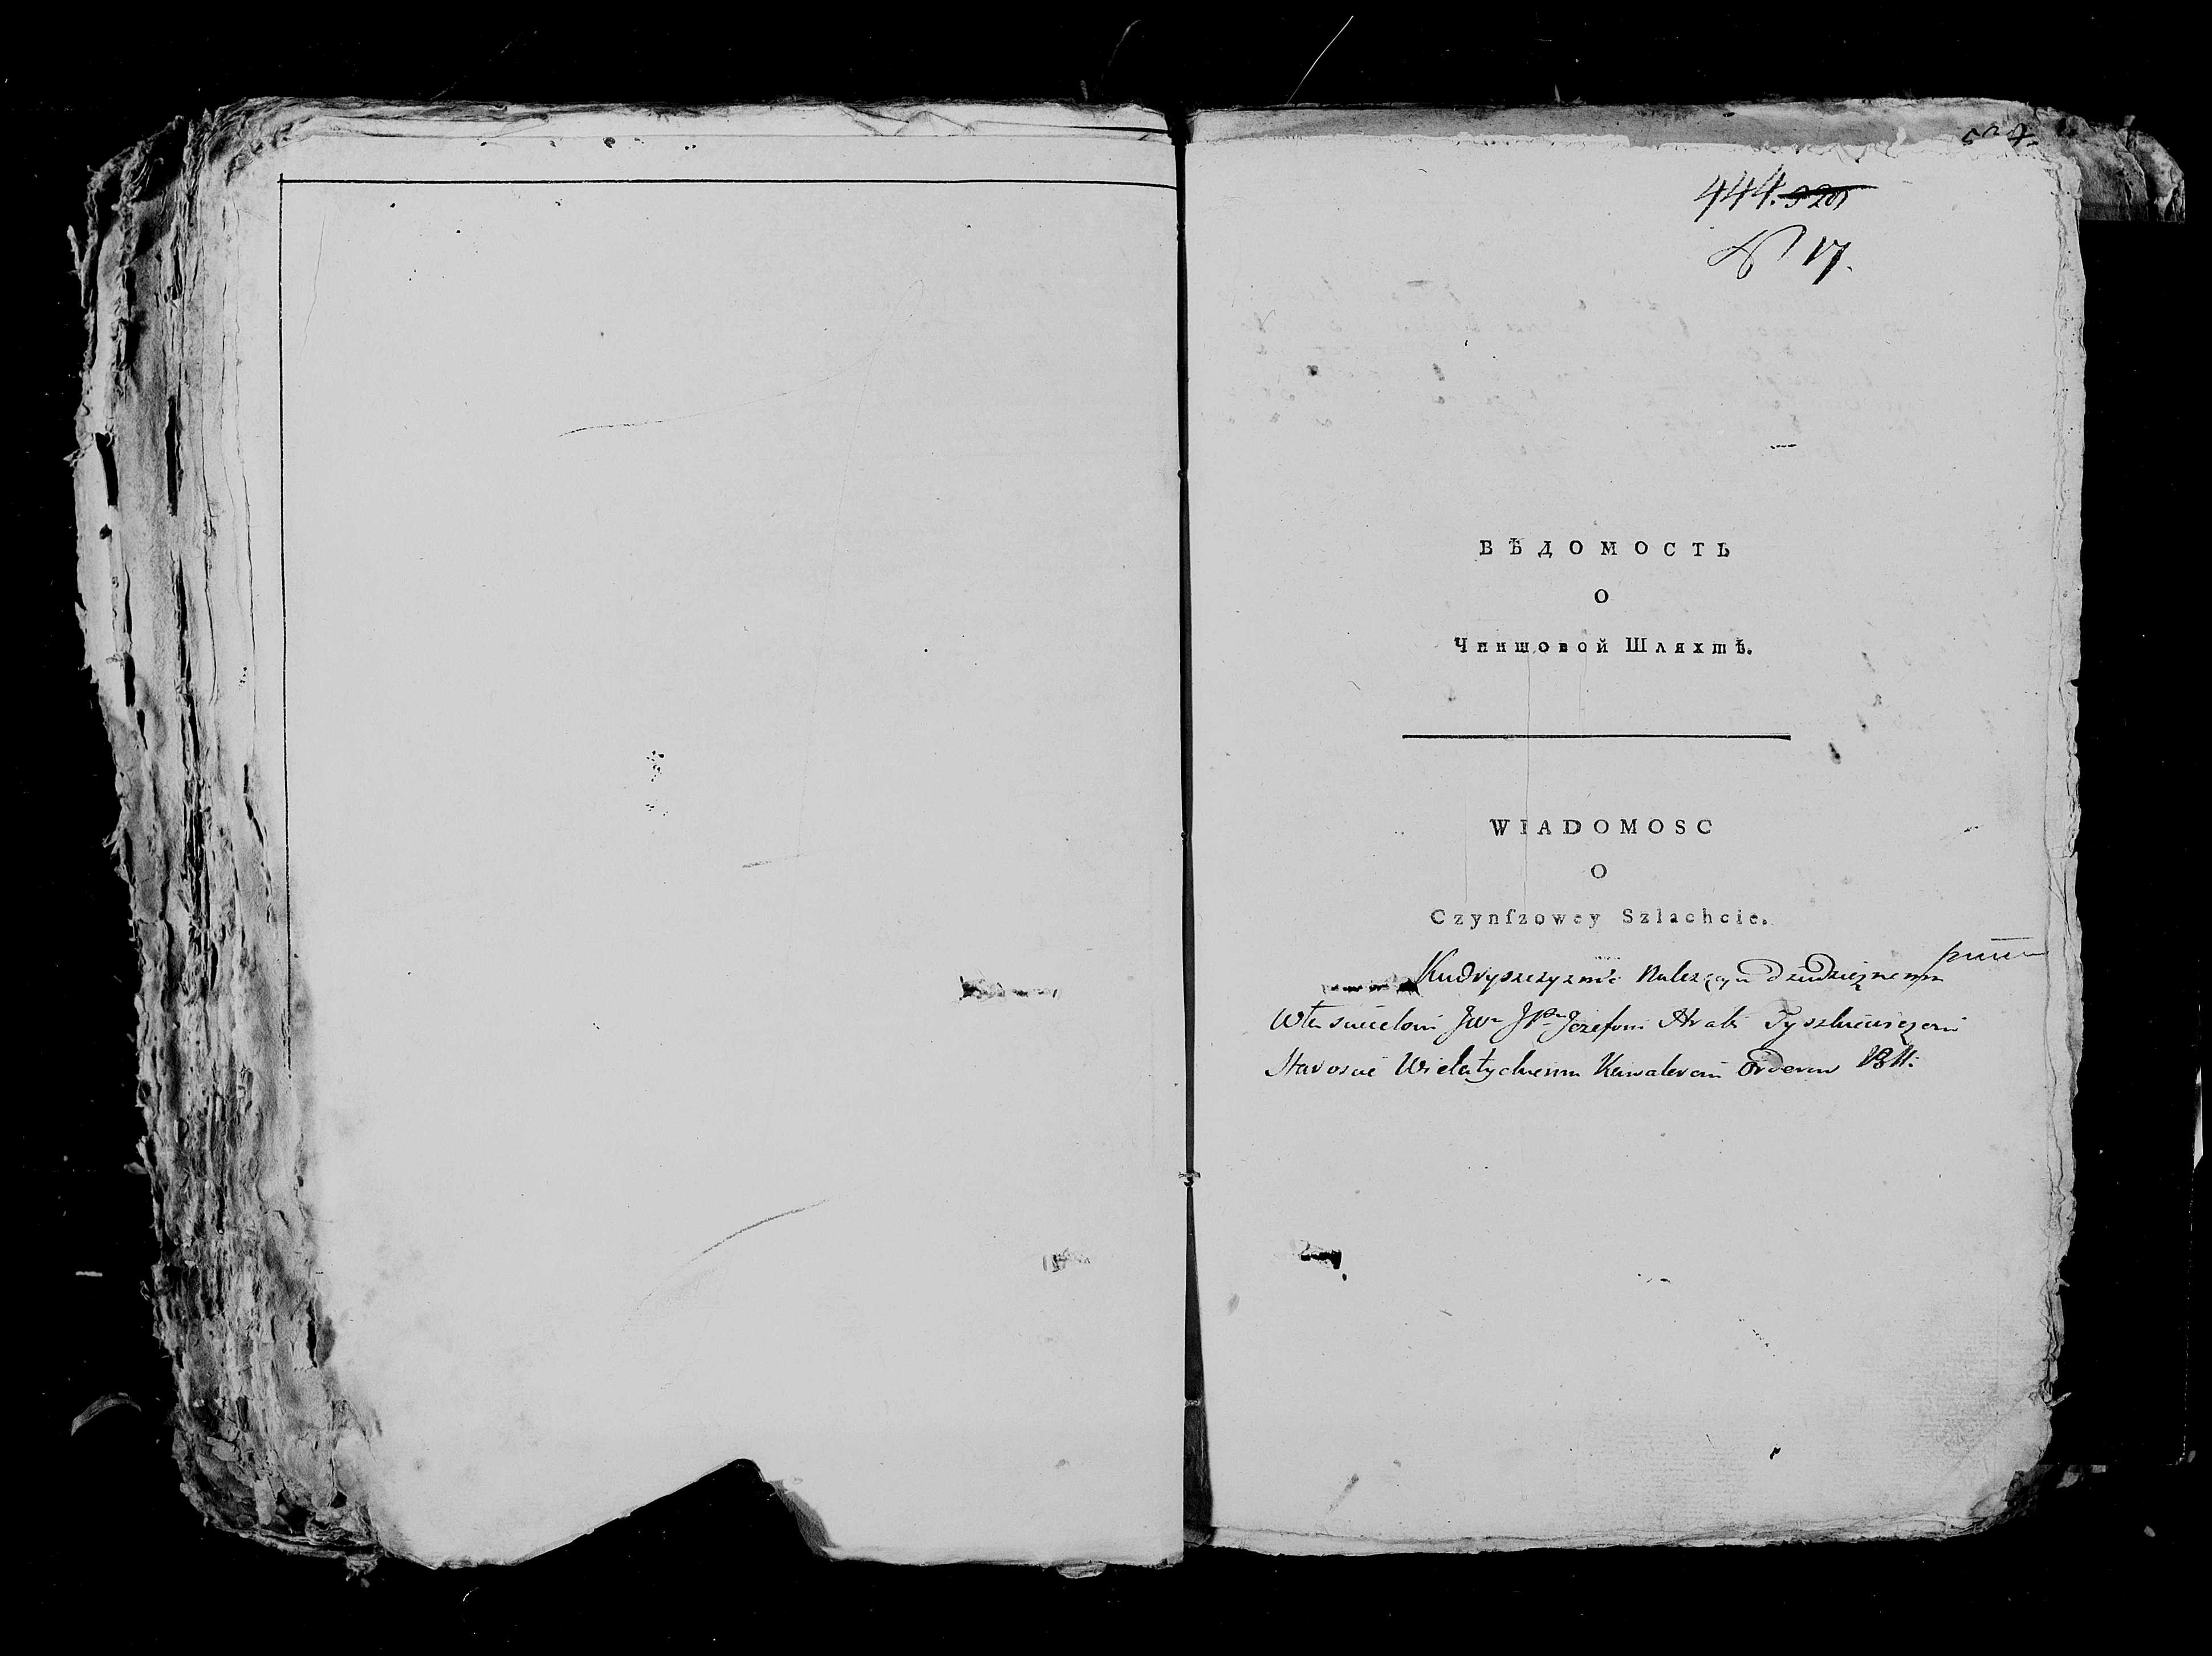 444. 520
№ 17.
ВѢДОМОСТЬ
О
Чиншовой Шляхтѣ.
WIADOMOSC
O
Czynſzowey Szlachcie.
Kudryszczyznie Należącyu Dziedzicznemu
Jwu JPu Jozefowi Hrabi Tyszkiewiczowi
Staroscie Wielatyckiemu Kawalerowi Orderow